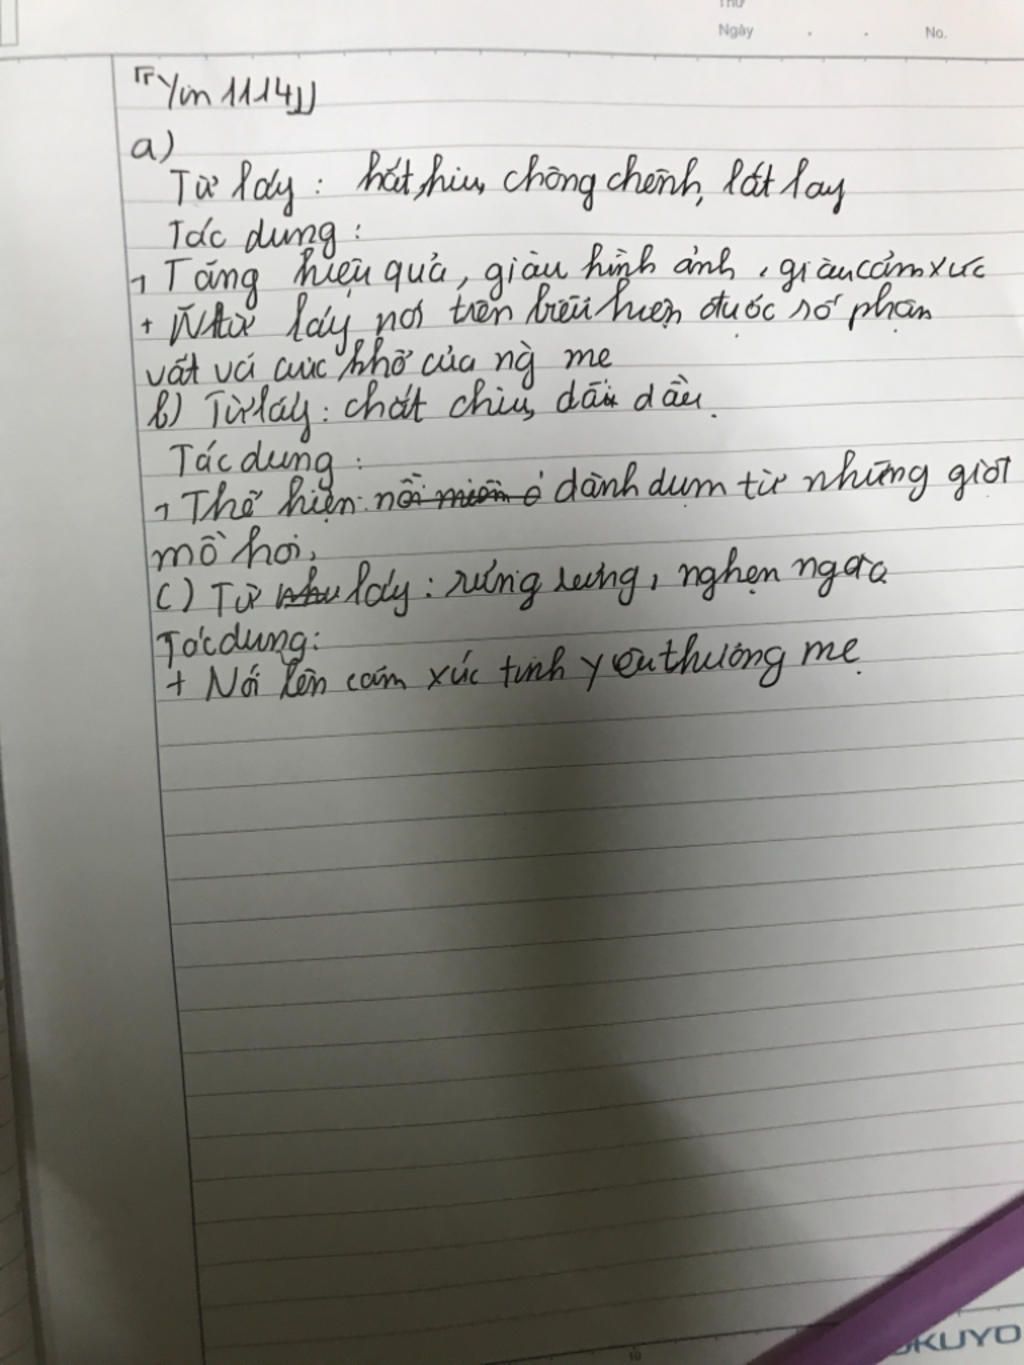 Thứ
Ngày . . No.
『Yin 1114』
a)
Từ láy : hắt hiu, chông chênh, lắt lay
Tác dụng :
+ Tăng hiệu quả, giàu hình ảnh, giàu cảm xúc
+ Ntừ láy nói trên biểu hiện được số phận
vất vả cực khổ của ng mẹ
b) Từ láy : chắt chiu, dãi dầu.
Tác dụng :
+ Thể hiện : dành dụm từ những giọt
mồ hôi.
c) Từ láy : rưng rưng, nghẹn ngào
Tác dụng :
+ Nói lên cảm xúc tình yêu thương mẹ
10
OKUYO